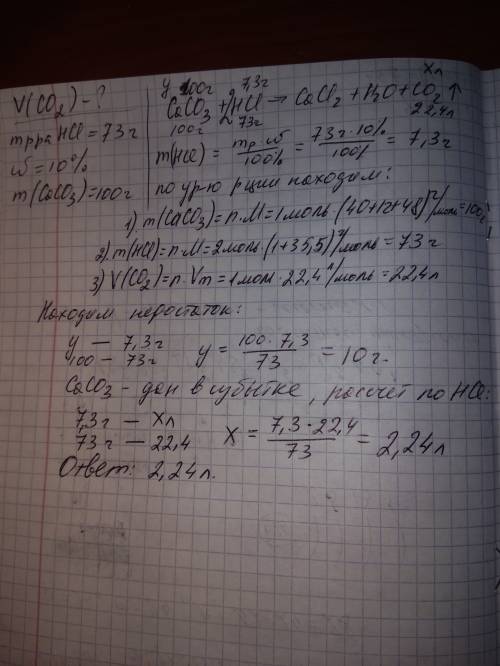 Xл
y 100г 7,3г
V(CO₂) - ?
CaCO₃ + 2HCl → CaCl₂ + H₂O + CO₂ ↑
100г 73г 22,4л
mрра HCl = 73г
ω = 10%
m(CaCO₃) = 100г
m(HCl) = mр·ω / 100% = 73г·10% / 100% = 7,3г
по урю рции находим:
1) m(CaCO₃) = n·M = 1моль·(40+12+48)г/моль = 100г
2) m(HCl) = n·M = 2моль·(1+35,5)г/моль = 73г
3) V(CO₂) = n·Vm = 1моль·22,4л/моль = 22,4л
Находим недостаток:
y — 7,3г
100 — 73г
y = 100·7,3 / 73 = 10г.
CaCO₃ - дан в избытке, рассчёт по HCl:
7,3г — Xл
73г — 22,4
X = 7,3·22,4 / 73 = 2,24л
Ответ: 2,24л.